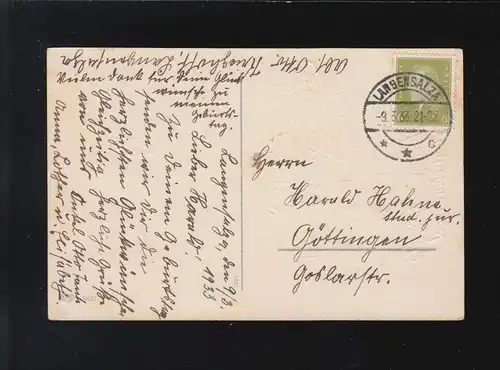 Abs. Otto Knieghoff, Langensalza
Vielen Dank für Deine Glück-
wünsche zu
meinem
Geburts-
tag.
Langensalza, den 9/3.
1933
Lieber Harald!
Zu Deinem Geburtstag
senden wir Dir die
herzlichsten Glückwünsche.
Gleichzeitig herzliche Grüße
von uns Onkel Otto, Tante
Anna, Lothar u. Elisabeth
LANGENSALZA
-9.3.33.21-22
* * c
6
Herrn
Harald Hahne
stud. jur.
Göttingen
Goslarstr.